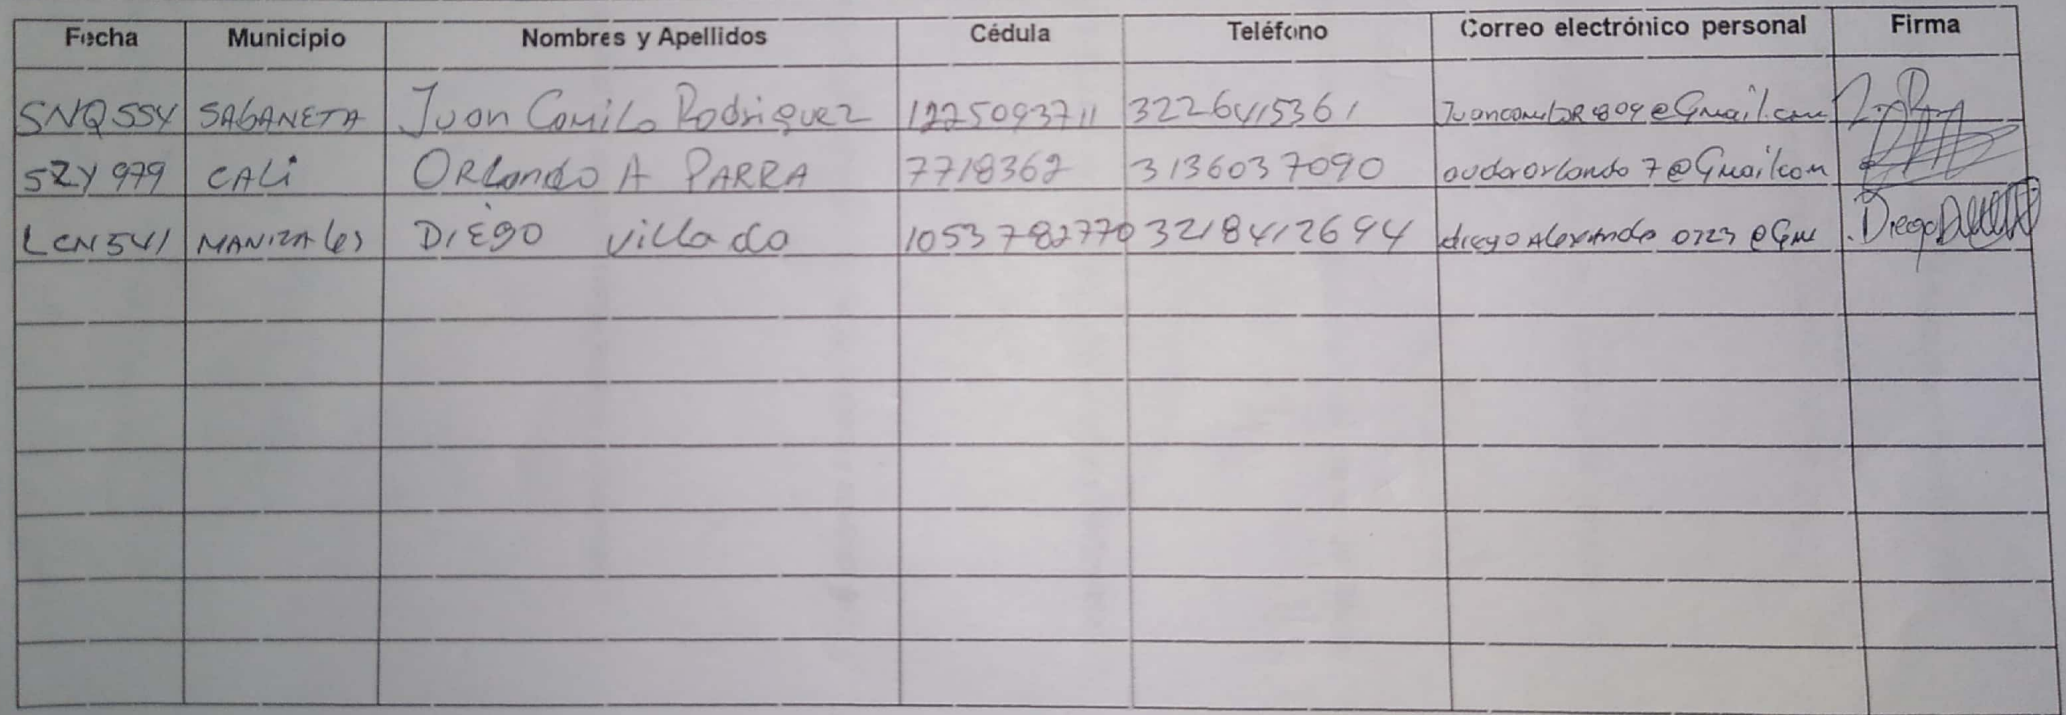 Fecha Municipio Nombres y Apellidos Cédula Teléfono Correo electrónico personal Firma
SNQ554 SABANETA Juan Camilo Rodriguez 1225093711 3226415361
SZY 979 CALi ORLando A PARRA 7718362 3136037090 @Gmailcom
LCN541 MANIZAles DIEGO Villada 1053782770 3218412694 0723@Gm Diego